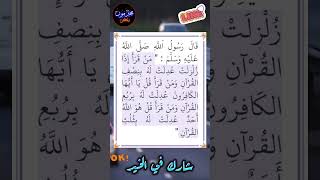 قَالَ رَسُولُ اللَّهِ صَلَّى اللَّهُ
عَلَيْهِ وَسَلَّمَ : " مَنْ قَرَأَ إِذَا
زُلْزِلَتْ عُدِلَتْ لَهُ بِنِصْفِ
الْقُرْآنِ وَمَنْ قَرَأَ قُلْ يَا أَيُّهَا
الْكَافِرُونَ عُدِلَتْ لَهُ بِرُبُعِ
الْقُرْآنِ وَمَنْ قَرَأَ قُلْ هُوَ اللَّهُ
أَحَدٌ عُدِلَتْ لَهُ بِثُلُثِ
الْقُرْآنِ "
OK!
شارك في الخير